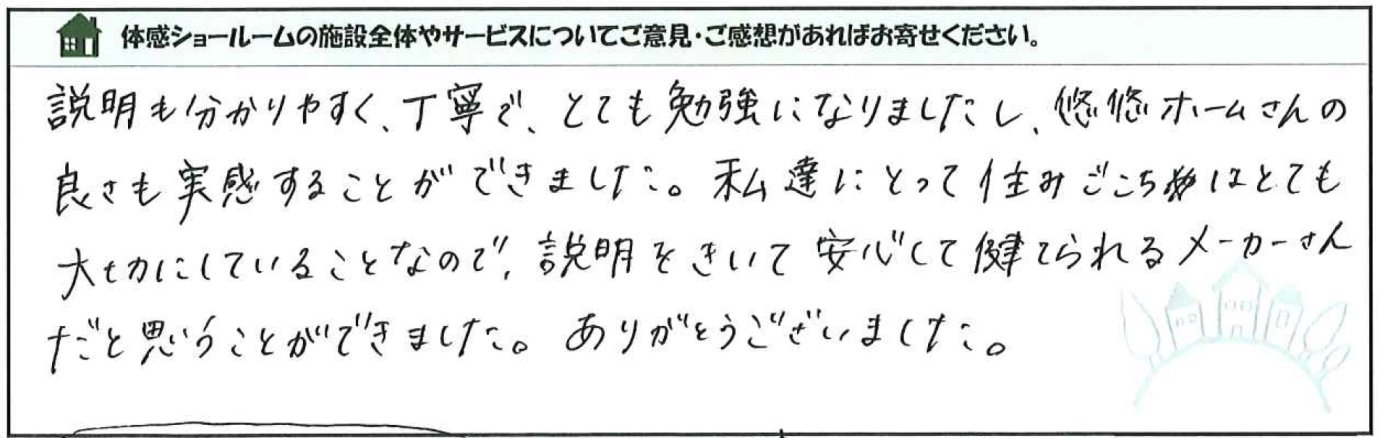 体感ショールームの施設全体やサービスについてご意見・ご感想があればお寄せください。
説明も分かりやすく、丁寧で、とても勉強になりましたし、悠悠ホームさんの
良さも実感することができました。私達にとって住みごこちはとても
大切にしていることなので、説明をきいて安心して健てられるメーカーさん
だと思うことができました。ありがとうございました。